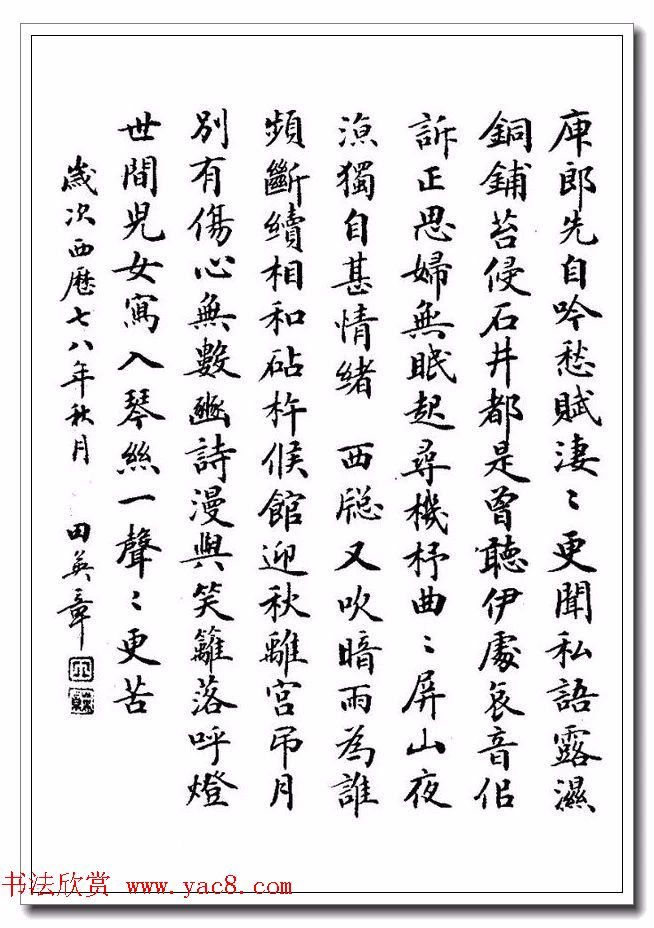 庾郎先自吟愁賦淒〻更聞私語露濕
銅鋪苔侵石井都是曾聽伊處哀音侣
訴正思婦無眠起尋機杼曲〻屏山夜
涼獨自甚情緒 西牕又吹暗雨為誰
頻斷續相和砧杵候館迎秋離宮吊月
別有傷心無數豳詩漫與笑籬落呼燈
世間兒女寫入琴絲一聲〻更苦
歲次西曆七八年秋月 田英章
书法欣赏 www.yac8.com